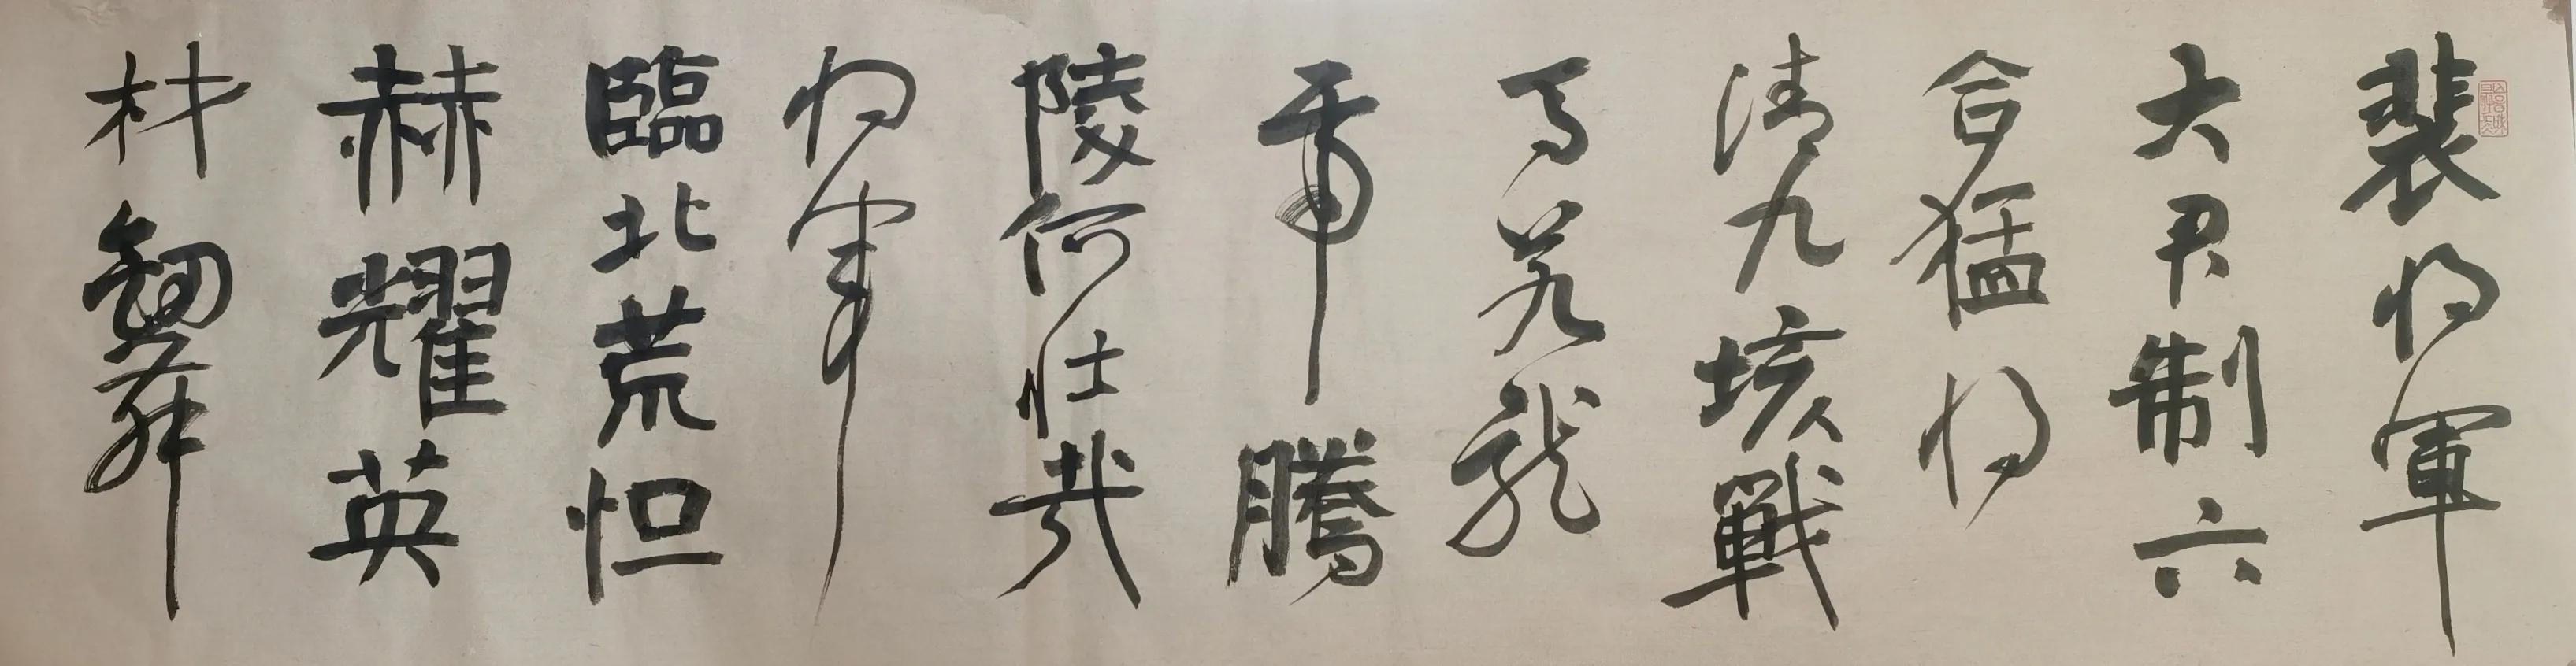 裴將軍
大君制六
合猛將
清九垓戰
馬若龍
虎騰
陵何壯哉
將軍
臨北荒烜
赫耀英
材劒舞